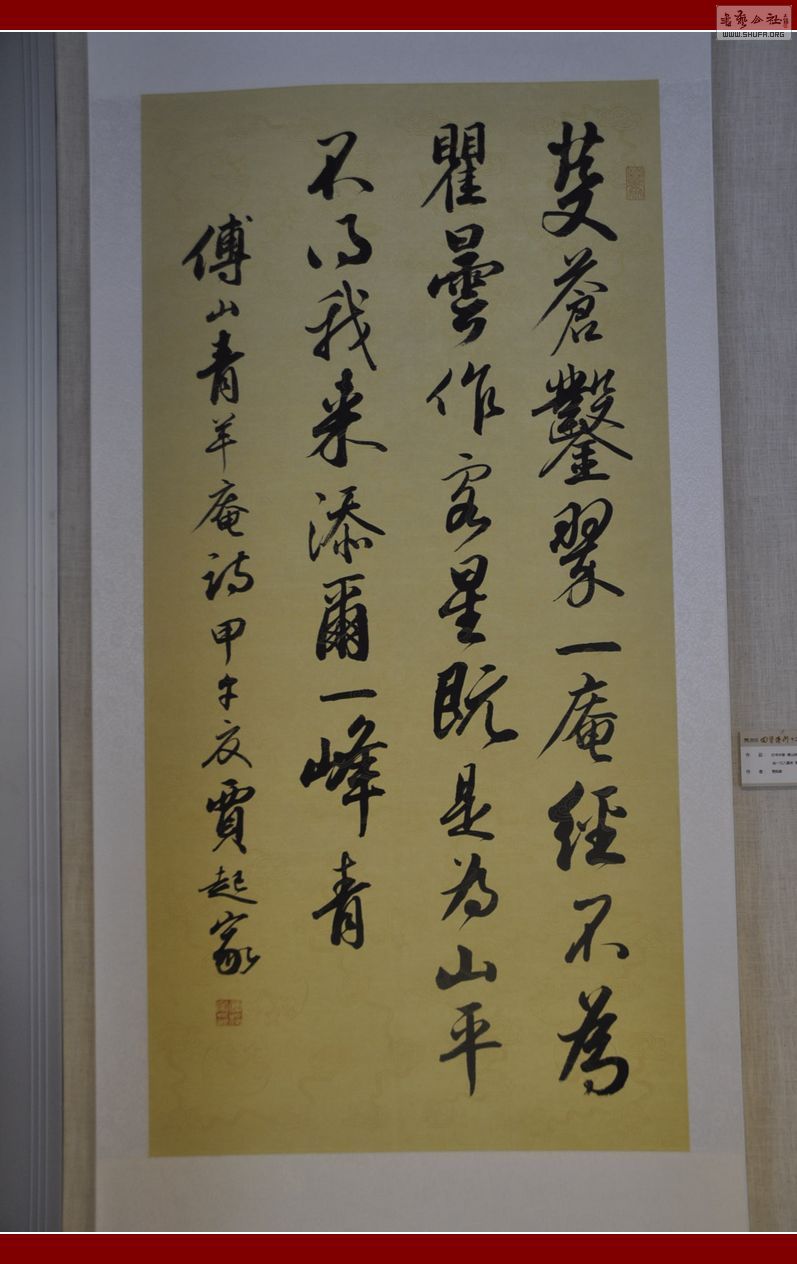 芟蒼鑿翠一庵經不為
瞿曇作客星既是為山平
不得我来添爾一峰青
傅山青羊庵詩甲午夏賈起家
書藝公社
WWW.SHUFA.ORG